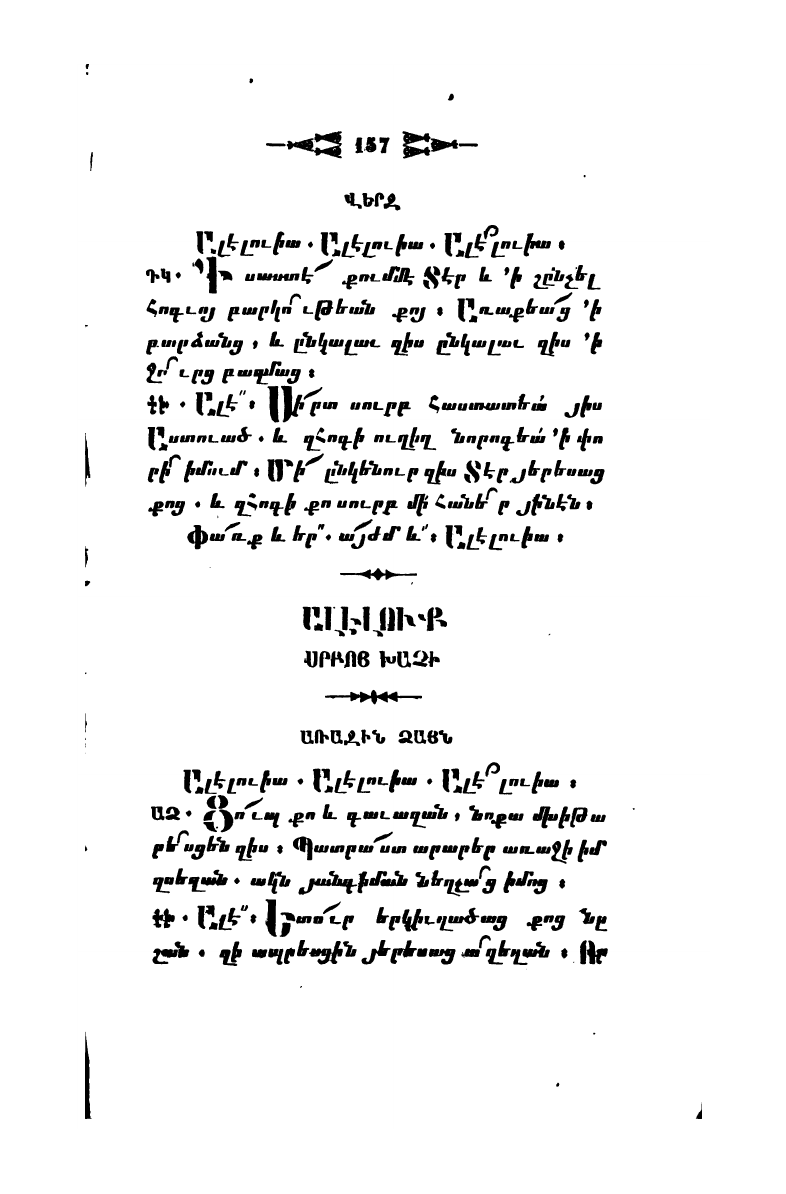 157
ՎԵՐՋ
Ալէլուիա . Ալէլուիա . Ալէ՟լուիա ։
ԴԿ . Ի սաստէ՛ քումմէ Տէր և ՚ի շընչել
Հոգւոյ բարկո՟ւթեան քոյ ։ Առաքեա՛ց ՚ի
բարձանց , և ընկալաւ զիս ընկալաւ զիս ՚ի
ջո՟ւրց բազմաց ։
ԴԿ . Ալէ՛՛ ։ Սի՛րտ սուրբ հաստատեա՛ յիս
Աստուած . և զհոգի ուղիղ նորոգեա՛ ՚ի փո
րի՟ իմում ։ Մի՛ ընկենուր զիս Տէր յերեսաց
քոց . և զհոգի քո սուրբ մի հանե՟ր յինէն ։
Փա՛ռք և եր՛՛ . ա՛յժմ և՛՛ ։ Ալէլուիա ։
ԱԼԷԼՈՒՔ
ՍՐԲՈՅ ԽԱՉԻ
ԱՌԱՋԻՆ ՁԱՅՆ
Ալէլուիա . Ալէլուիա . Ալէ՟լուիա ։
ԱՁ . Ցո՛ւպ քո և գաւազան , նոքա մխիթա
րե՟սցեն զիս ։ Պատրա՛ստ արարեր առաջի իմ
զսեղան . ակն յանդիման նեղչա՟ց իմոց ։
Ալէ՛՛ ։ Ետո՛ւր երկիւղածաց քոց նը
շան . զի ապրեսցին յերեսաց ա՟ղեղան ։ Որ